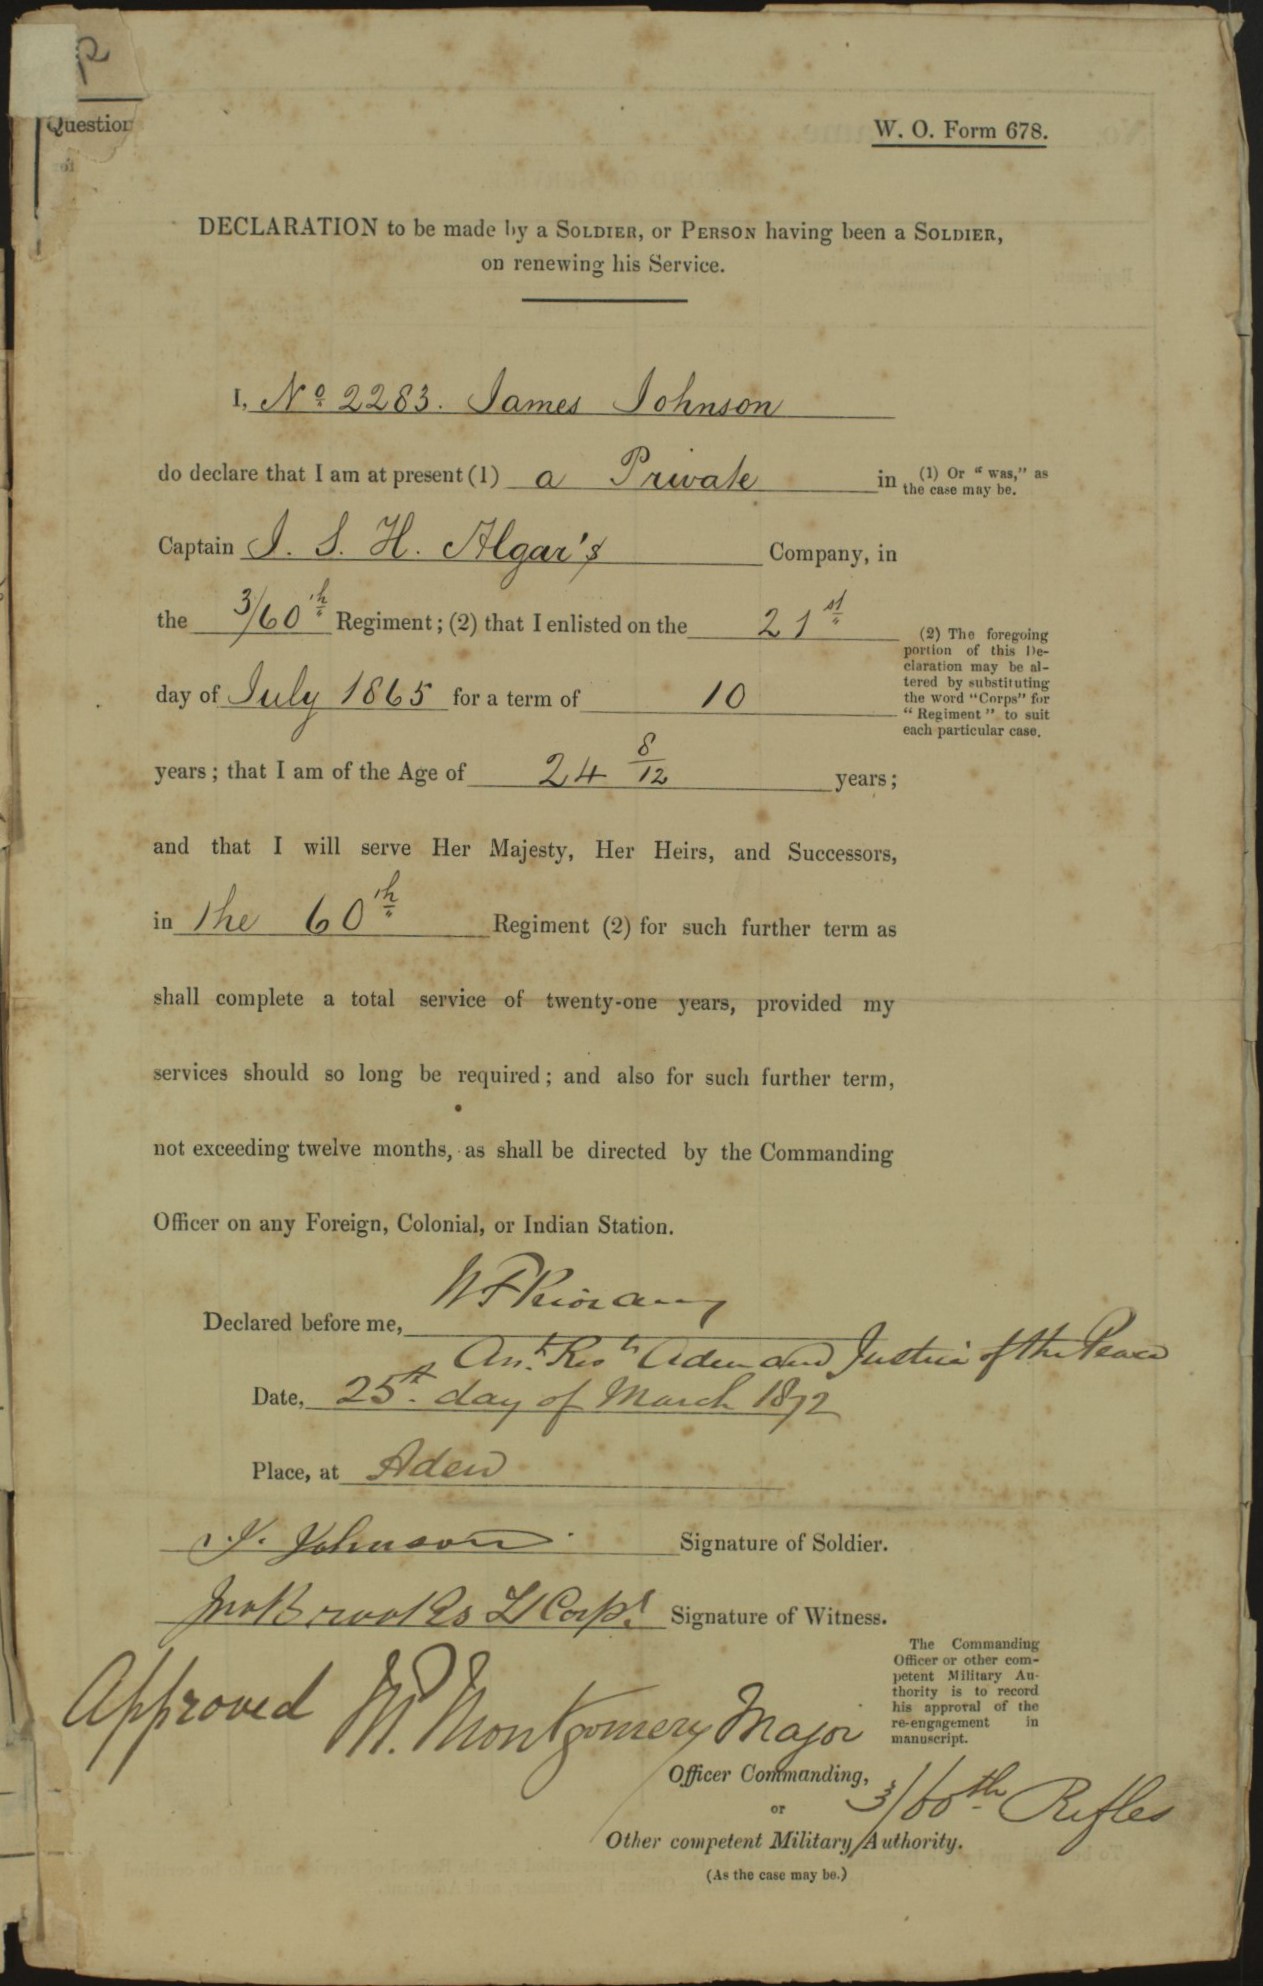 Question
W. O. Form 678.
DECLARATION to be made by a SOLDIER, or PERSON having been a SOLDIER,
on renewing his Service.
I, No 2283. James Johnson
do declare that I am at present (1) a Private in
(1) Or "was," as
the case may be.
Captain J. S. H. Algar's Company, in
the 3/60th Regiment; (2) that I enlisted on the 21st
(2) The foregoing
portion of this De-
claration may be al-
tered by substituting
the word "Corps" for
"Regiment" to suit
each particular case.
day of July 1865 for a term of 10
years; that I am of the Age of 24 8/12 years;
and that I will serve Her Majesty, Her Heirs, and Successors,
in the 60th Regiment (2) for such further term as
shall complete a total service of twenty-one years, provided my
services should so long be required; and also for such further term,
not exceeding twelve months, as shall be directed by the Commanding
Officer on any Foreign, Colonial, or Indian Station.
Declared before me,
Aden and Justice of the Peace
Date, 25th day of March 1872
Place, at Aden
J. Johnson Signature of Soldier.
Jno Brookes L Corpl Signature of Witness.
The Commanding
Officer or other com-
petent Military Au-
thority is to record
his approval of the
re-engagement in
manuscript.
Approved M. Montgomery Major
Officer Commanding,
3/60th Rifles
or
Other competent Military Authority.
(As the case may be.)